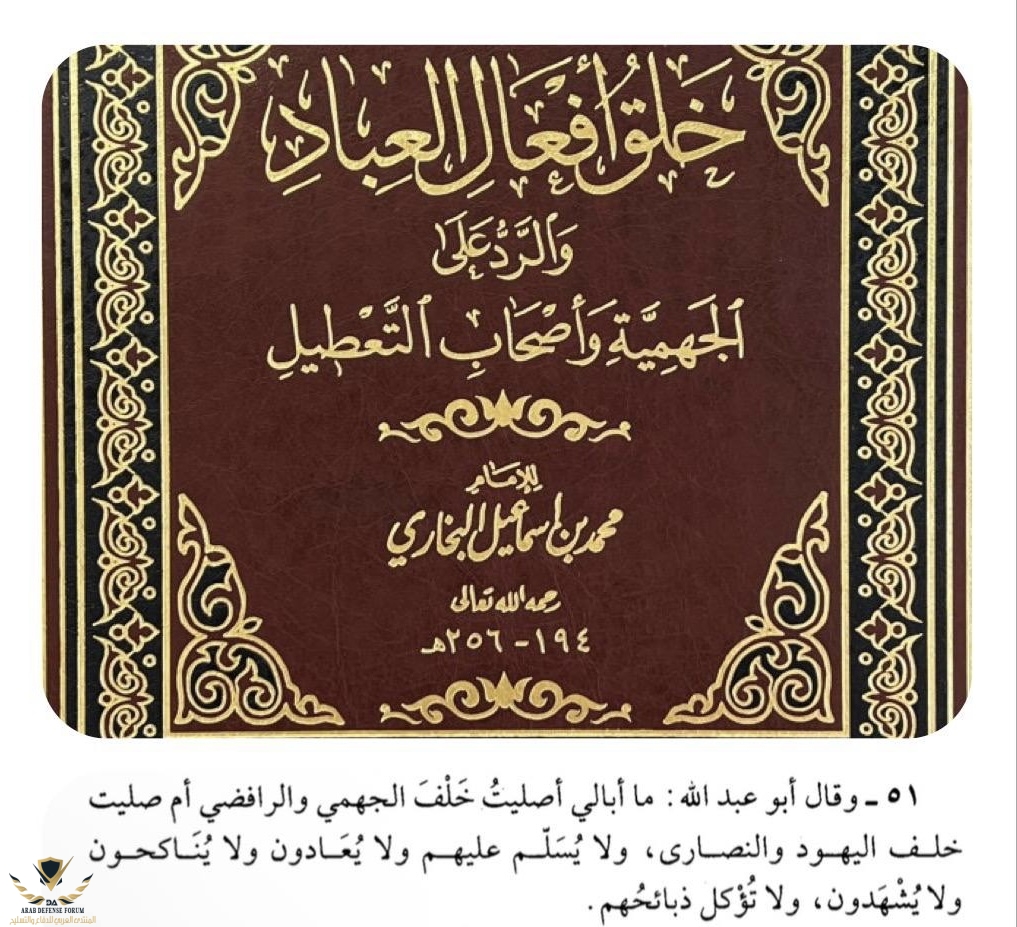 خَلْقُ أَفْعَالِ العِبَادِ
وَالرَّدُّ عَلَى
الجَهْمِيَّةِ وَأَصْحَابِ التَّعْطِيلِ
لِلإِمَامِ
محمد بن إسماعيل البخاري
رحمه الله تعالى
١٩٤ - ٢٥٦هـ
٥١ ـ وقال أبو عبد الله: ما أبالي أصليتُ خَلْفَ الجهمي والرافضي أم صليت
خلف اليهود والنصارى، ولا يُسَلّم عليهم ولا يُعَادون ولا يُنَاكحون
ولا يُشْهَدون، ولا تُؤْكل ذبائحُهم.
DA
ARAB DEFENSE FORUM
المنتدى العربي للدفاع والتسليح